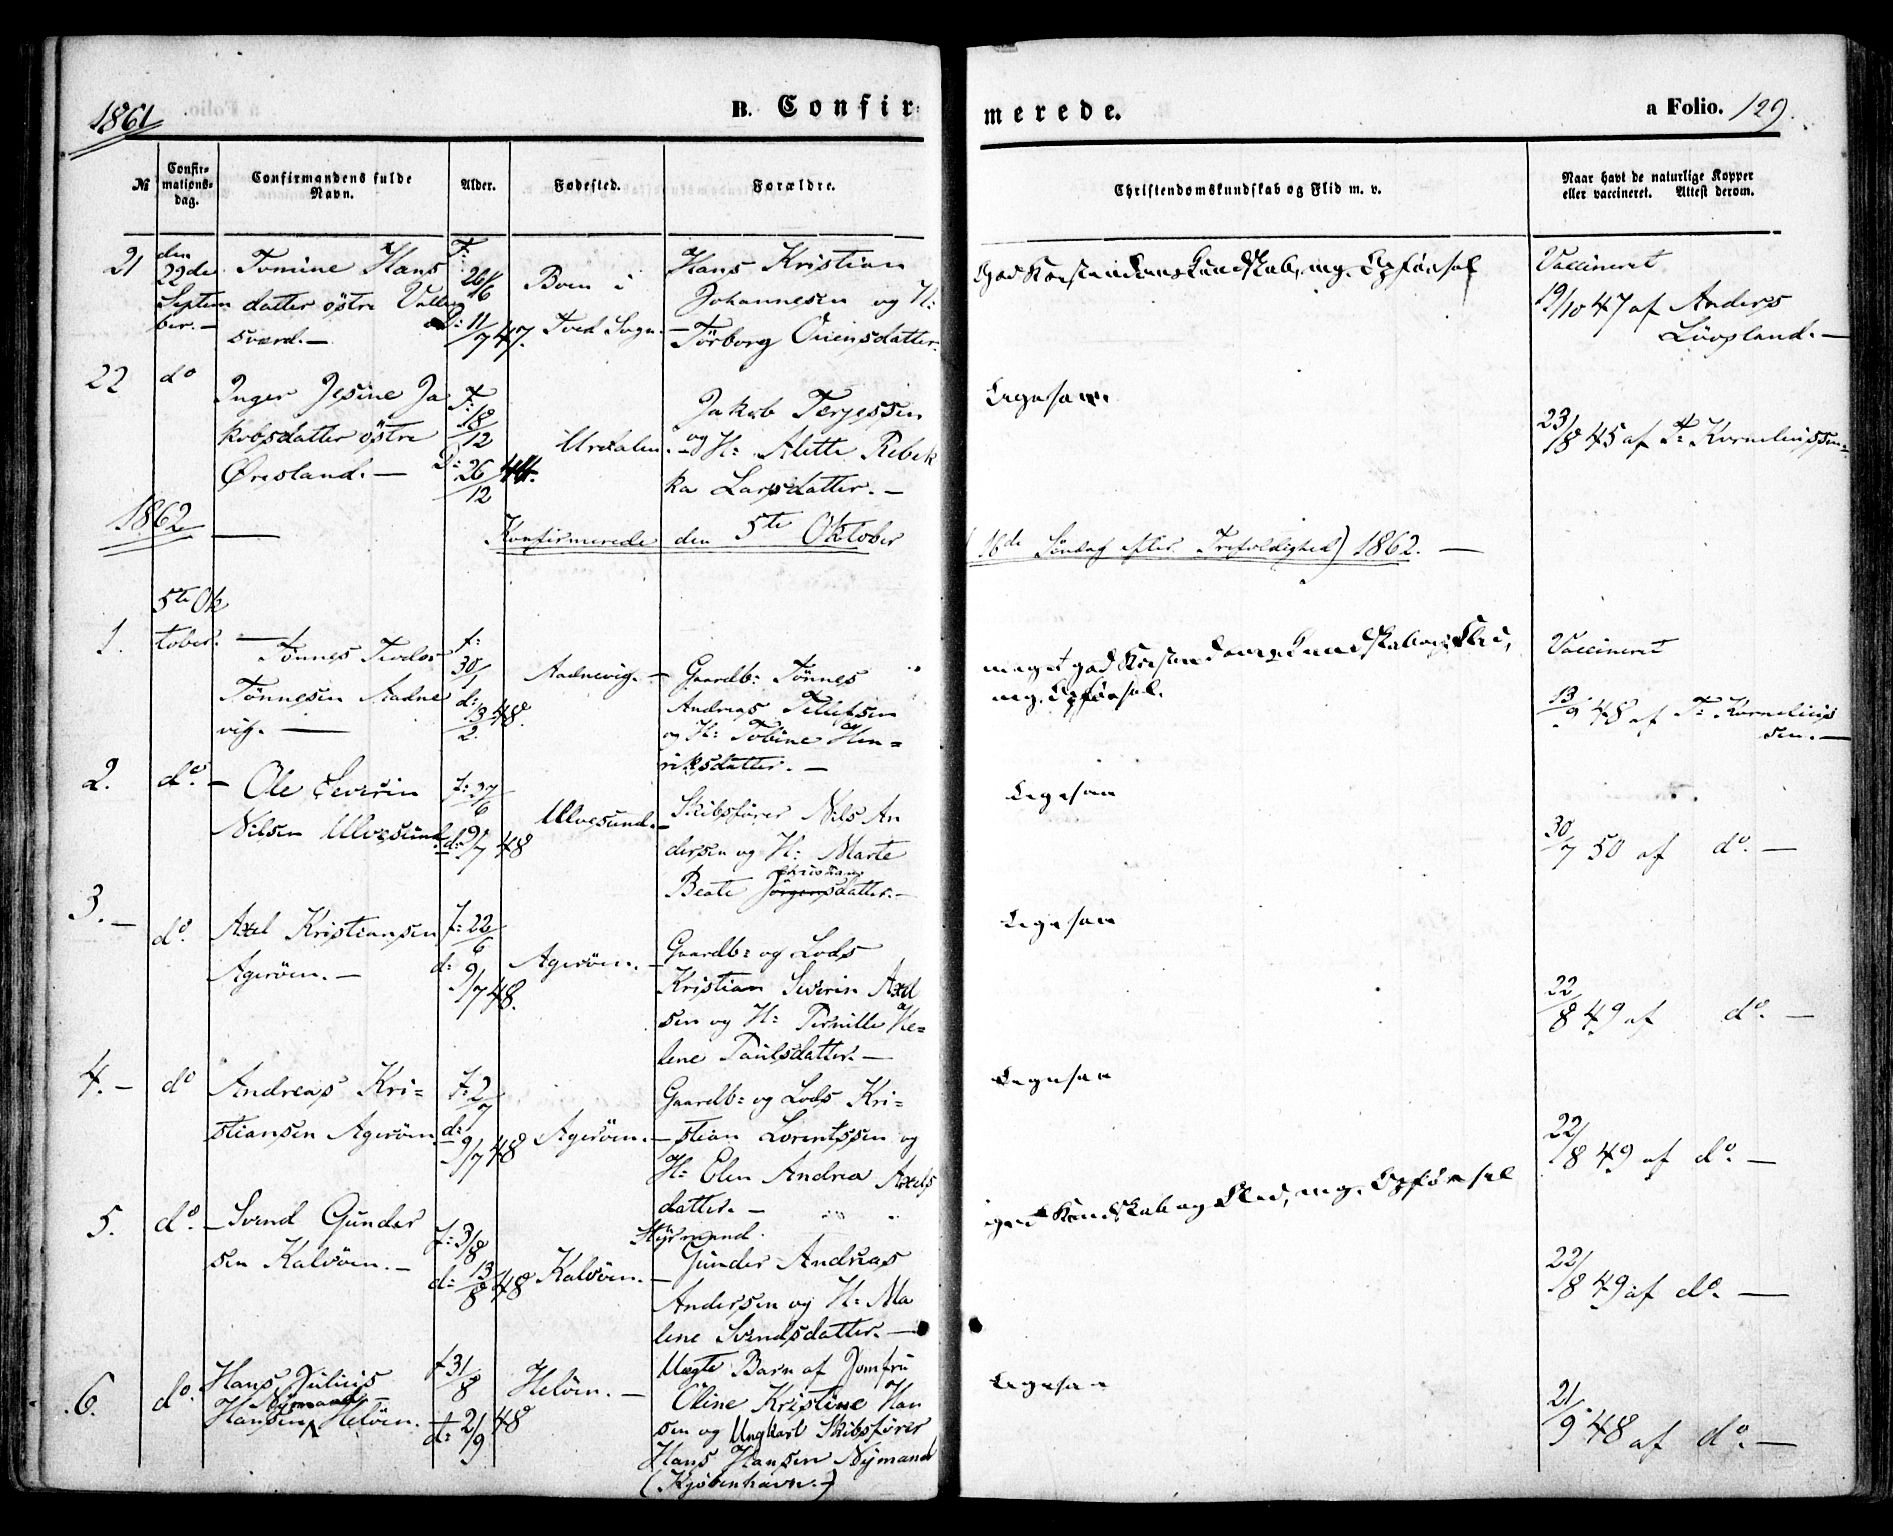 1861
B. Confirmerede.
a Folio. 129.
№
Confirmations-dag.
Confirmandens fulde Navn.
Alder.
Fødested.
Forældre.
Christendomskundskab og Flid m. v.
Naar havt de naturlige Kopper eller vaccineret. Attest derom.
21
den 22de September.—
Tomine Hans
datter östre Valle
sværd.—
F: 26/6
D: 11/7 47.
Boen i
Tved Sogn.
Hans Kristian
Johannesen og H:
Törborg Ouensdatter.
god Kristendomskundskab, mg. Opførsel
Vaccineret
19/10 47 af Anders
Lövsland.—
22
do
Inger Jesine Ja
kobsdatter östre
Øresland.—
F: 18/12
D: 26/12 44.
Uredalen.—
Jakob Terjessen
og H: Alette Rebek
ka Larsdatter.—
Ligesaa
23/8 45 af T: Korneliussen
1862 —
Konfirmerede den 5te Oktober
(16de Söndag efter Trefoldighed) 1862.—
1.
5te Ok
tober.
Tønnes Teodor
Tönnesen Aadne
vig.—
f: 30/1
d: 13/2 48.
Aadnevig.—
Gaardb: Tönnes
Andreas Tellefsen
og H: Tobine Hen=
riksdatter.—
meget god Kristendomskundskab og Flid,
mg. Opførsel.
Vaccineret
13/9 48 af T: Kornelius
sen.—
2.
do.—
Ole Severin
Nilsen Ulvesund
f: 27/6
d: 9/7 48
Ulvesund.—
Skibsfører Nils An
dersen og H: Marte
Christians
Beate Jörgensdatter.—
Ligesaa
30/7 50 af do.—
3.—
do.
Axel Kristiansen
Ageröen.—
f: 22/6
d: 9/7 48.
Ageröen.—
Gaardb: og Lods
Kristian Severin Axel
sen og H: Pernille He=
lene Paulsdatter.—
Ligesaa
22/8 49 af do.—
4.—
do
Andreas Kri=
stiansen Ageröen
f: 2/7
d: 9/7 48
Ageröen.—
Gaardb: og Lods Kri=
stian Lorentssen og
H: Elen Andrea Axels
datter.—
Ligesaa
22/8 49 af do.—
5.
do.—
Svend Gunder
sen Kalvöen.—
f: 3/8
d: 13/8 48
Kalvöen.—
Styrmand.
Gunder Andreas
Andersen og H: Ma
lene Svendsdatter.—
god Kundskab og Flid, mg. Opførsel
22/8 49 af do.—
6.
do.
Hans Julius
Nymand
Hansen Helöen.
f 31/8
d: 21/9 48
Helöen.—
Uægte Barn af Jomfru
Oline Kristine Han
sen og Ungkarl Skibsfører
Hans Hansen Nymand
(Kjöbenhavn.—)
Ligesaa
21/9 48 af do.—